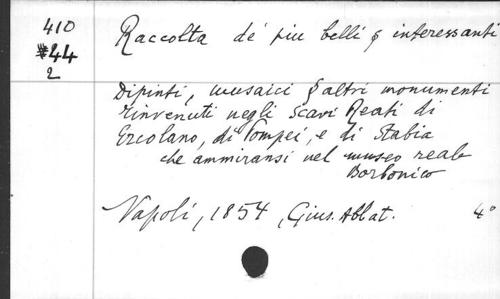 410
#44
2
Raccolta de' piu belli & interessanti
Dipinti, musaici & altri monumenti
rinvenuti negli Scavi Reali di
Ercolano, di Pompei, e di Stabia
che ammiransi nel museo reale
Borbonico
Napoli, 1854, Gius. Abbat. 4°